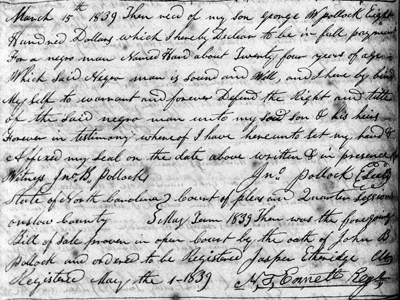 March 15th 1839 Then recd of my son George W pollock Eight
Hundred Dollars which I hereby Declare to be in full payment
For a negro man Named Hard about Twenty four years of age
Which said Negro man is sound and Well, and I here by bind
My self to warrant and forever Defend the Right and title
of the said negro man unto my said son & his heirs
Forever in testimony where of I have hereunto set my hand &
Affixed my seal on the date above written & in presence of
Witness Jno B. Pollock Jno Pollock
State of North Carolina Court of pleas and Quarter Sessions
onslow County May Term 1839 Then was the foregoing
Bill of Sale proven in open Court by the oath of John B
Pollock and ordered to be Registered Jasper Etheridge Clk
Registered May the 1-1839 Ennett Regtr